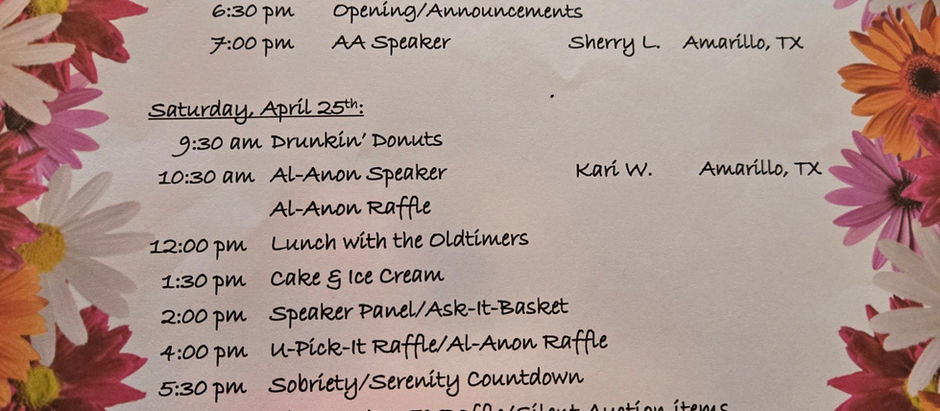 6:30 pm Opening/Announcements
7:00 pm AA Speaker Sherry L. Amarillo, TX
Saturday, April 25th:
9:30 am Drunkin' Donuts
10:30 am Al-Anon Speaker Kari W. Amarillo, TX
Al-Anon Raffle
12:00 pm Lunch with the Oldtimers
1:30 pm Cake & Ice Cream
2:00 pm Speaker Panel/Ask-It-Basket
4:00 pm U-Pick-It Raffle/Al-Anon Raffle
5:30 pm Sobriety/Serenity Countdown
Raffle/Silent Auction items